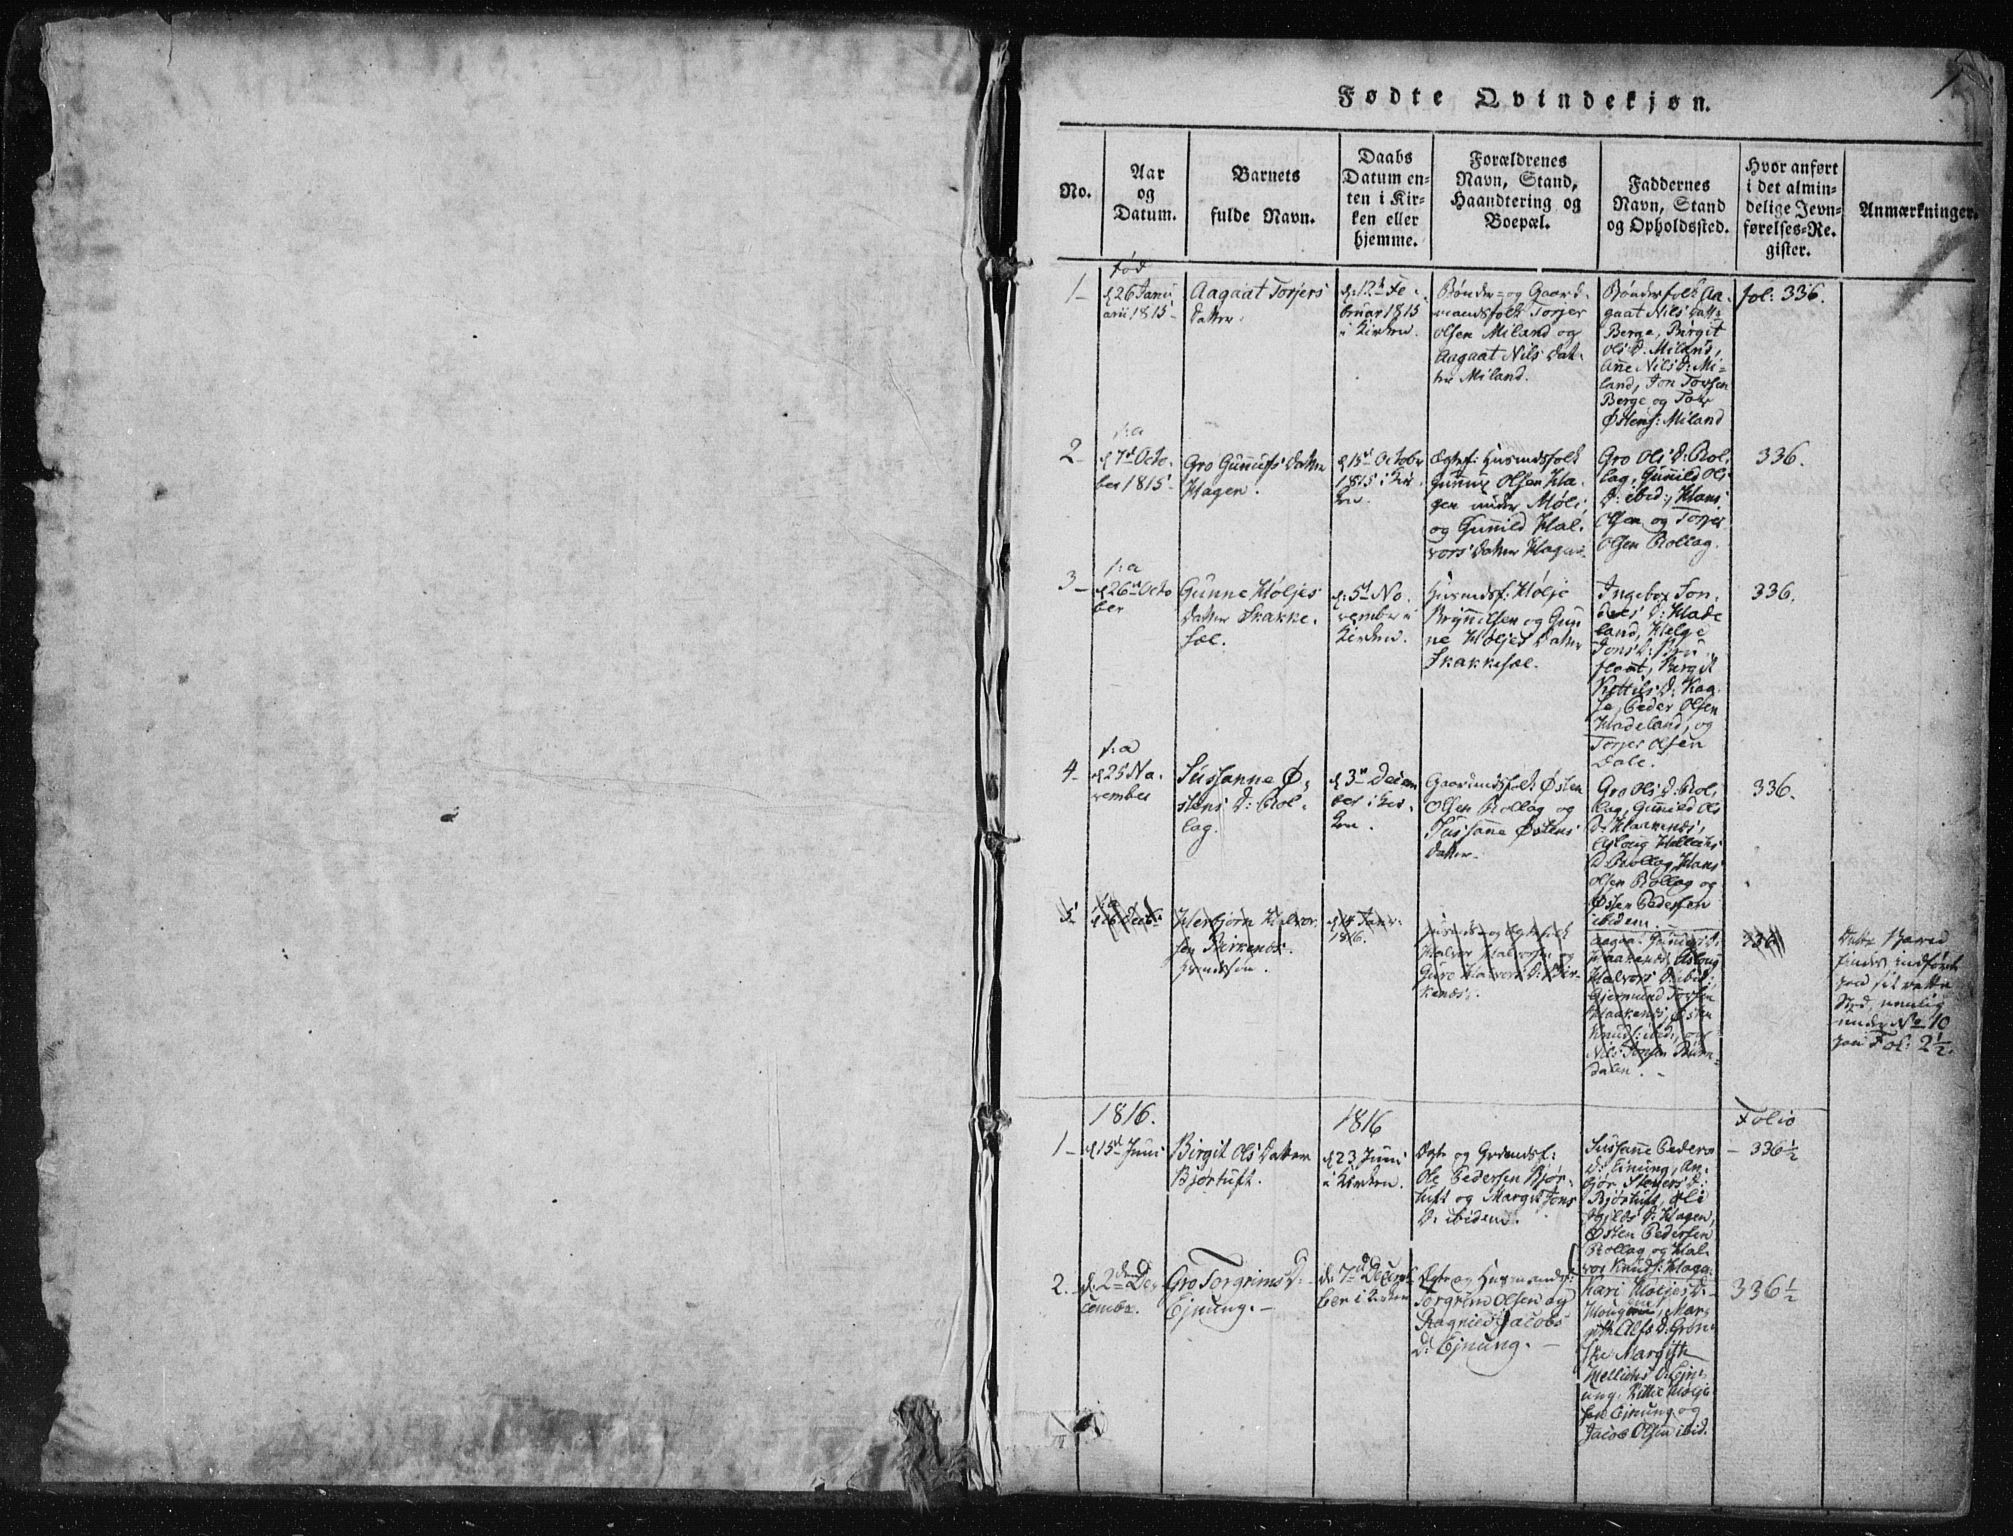 1
Fødte Qvindekjøn.
No.
Aar
og
Datum.
Barnets
fulde Navn.
Daabs
Datum en-
ten i Kir-
ken eller
hjemme.
Forældrenes
Navn, Stand,
Haandtering og
Boepæl.
Faddernes
Navn, Stand
og Opholdssted.
Hvor anført
i det almin-
delige Jevn-
førelses-Re-
gister.
Anmærkninger.
1-
fød
d 26 Janu
arii 1815
Aagaat Torjers
Datter.
d: 12te Fe-
bruar 1815
i Kirken.
Bønder- og Gaard-
mandsfolk Torjer
Olsen Miland og
Aagaat Nils Dat-
ter Miland.
Bønderfolk Aa-
gaat Nils Datt:
Berge, Birgit
Ols D: Miland,
Ane Nils D: Mi-
land, Jon Torsen
Berge og Tor
Østens: Miland
fol: 336.
2-
d 7de Octo-
ber 1815
Gro Gunnufs Datter
Hagen.
d 15de Octobr
1815 i Kir-
ken
Ægtef: Husmdsfolk
Gunnuf Olsen Ha-
gen under Møli,
og Gunild Hal-
vors Datter Hagen
Gro Ols D: Rol-
lag, Gunnild Ols
D: ibid:, Hans
Olsen og Torjer
Olsen Rollag.
336.
3-
d 26de Octo
ber
Gunne Høljes
Datter Skakke-
sæl.
d: 5te No-
vember i
Kirken.
Husmdsf: Hølje
Brynnilsen og Gun
ne Høljes Datter
Skakkesæl.
Ingebor
D: Hade
land, Helge
Jons D:
Birgit
Kittils D:
Peder Olsen
Hadeland, og
Torjer Olsen
Dale.
336.
4-
d 25 No-
vember
Sussanne Ø-
stens D: Rol-
lag.
d 3de Decem
ber i Kir-
ken.
Gaardmdsfolk Østen
Olsen Rollag og
Sussane Østens
Datter.
Gro Ols D: Rol-
lag, Gunnild Ols
D: Haakenæs,
Asloug
D Rollag, Hans
Olsen Rollag og
Østen Pedersen
ibidem
336.
5
Herbjørn Halvor
sen Birkenes.
d 14 Janr:
1816.
Husmds- og Ægtefolk
Halvor Halvorsen og
Guro Halvors D: Bir-
kenæs.
Haakenæs, Asloug
Halvors D: ibid:,
Gjermund Torsen
Haakenæs, Østen
Knuds: ibid:, og
Nils Jonsen
dalen.
336
Dette Barn
findes indført
paa sit rette
Sted nemlig
under No 10
paa Fol: 2½.
1816.
1816
Folio
1-
d 15de Juni
Birgit Ols Datter
Bjørtuft.
d 23 Juni
i Kirken.
Ægte og Grdmdsf:
Ole Pedersen Bjør-
tuft og Margit Jons
D: ibidem.
Sussane Peders
D: Einung, An-
bjør Steners D:
Bjørtuft,
D: Hagen,
Østen Pedersen
Rollag og Hal-
vor Knuds: Haga:
- 336½
2.-
d: 2den De-
cembr.
Gro Torgrims D: -
Ejnung. -
d: 7de Decem
ber i Kirken
Ægte og Husmandsf:
Torgrim Olsen og
Ragnild Jacobs
D: Ejnung. -
Kari Høljes D: -
Hougene, Mar-
gith Alfs D: Grøn-
Margith
D: Ejn-
ung, Kittil Hølje
sen Ejnung og
Jacob Olsen ibid.
336½